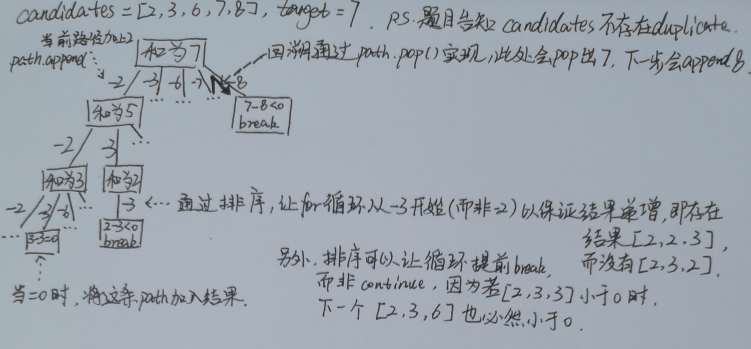 candidates = [2,3,6,7,8], target = 7. PS.题目告知 candidates 不存在duplicate.
当前路径加上2
path.append
和为7
回溯通过path.pop()实现,此处会pop出7,下一步会append 8.
-2 -3 -6 -7 -8
和为5
7-8<0
break
-2 -3
和为3 和为2
-2 -3 -6 -3
通过排序,让for循环从-3开始(而非-2)以保证结果单增,即存在
结果[2,2,3],
而没有[2,3,2].
3-3=0
2-3<0
break
另外,排序可以让循环提前break,
而非continue,因为若[2,3,3]小于0时,
下一个[2,3,6]也必然小于0.
当=0时,将这条path加入结果.